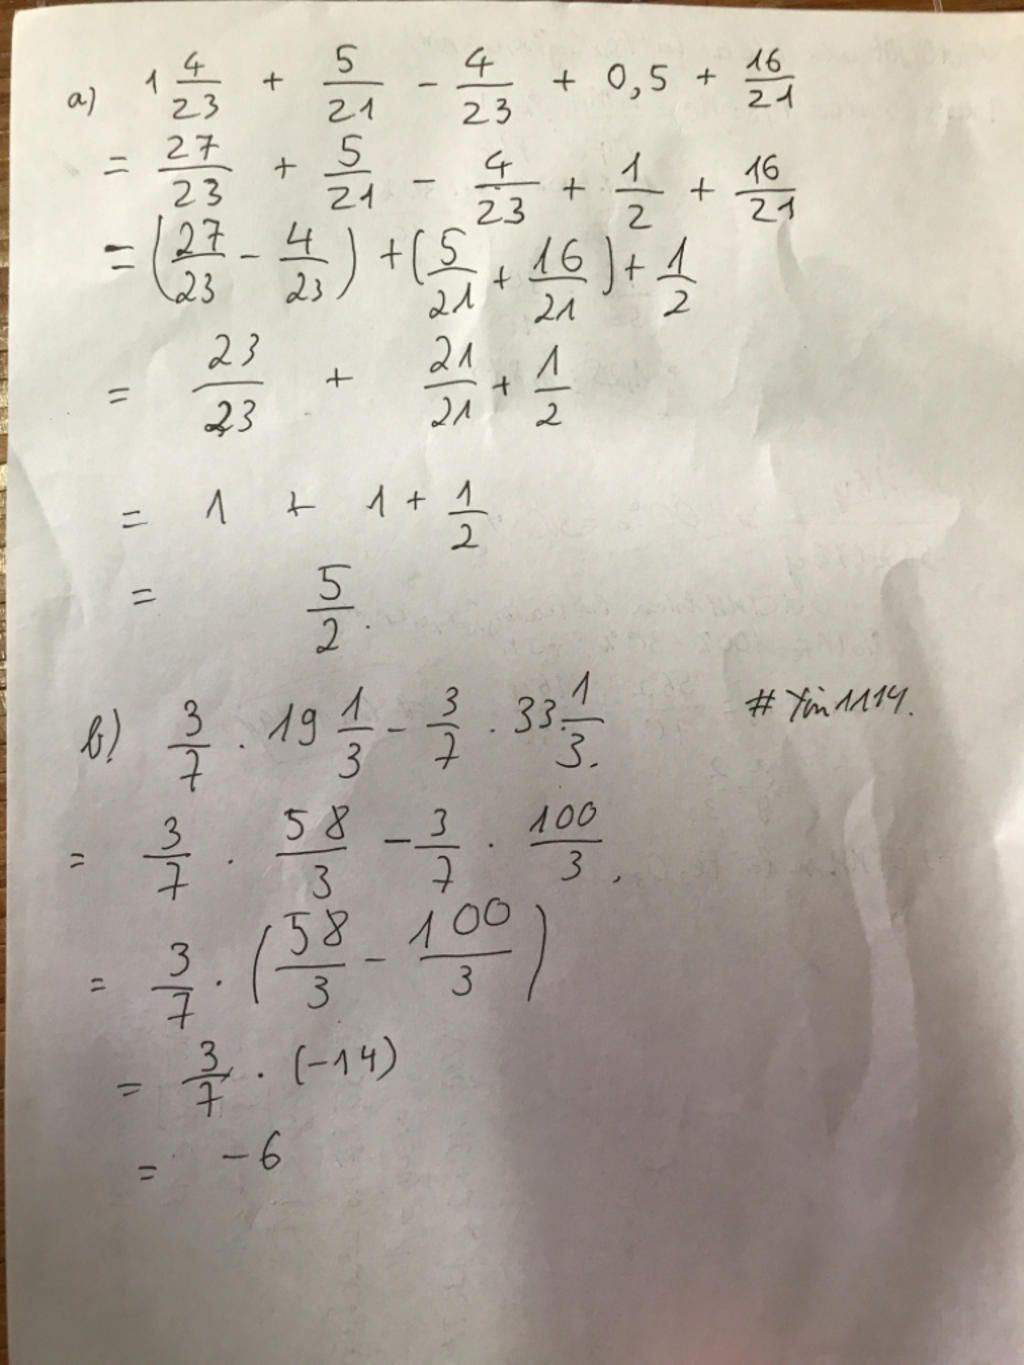 a) 1 4/23 + 5/21 - 4/23 + 0,5 + 16/21
= 27/23 + 5/21 - 4/23 + 1/2 + 16/21
= (27/23 - 4/23) + (5/21 + 16/21) + 1/2
= 23/23 + 21/21 + 1/2
= 1 + 1 + 1/2
= 5/2.
b) 3/7 . 19 1/3 - 3/7 . 33 1/3.
# Yin1114.
= 3/7 . 58/3 - 3/7 . 100/3.
= 3/7 . (58/3 - 100/3)
= 3/7 . (-14)
= -6